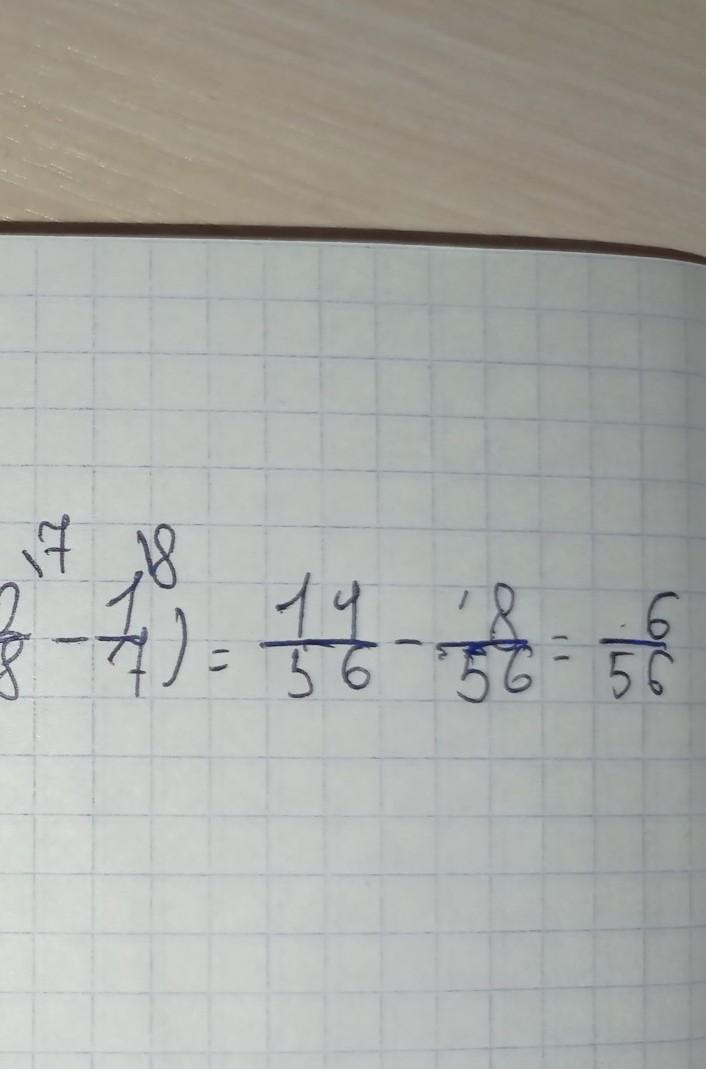 2/8 \7 - 1/7 \8 ) = 14/56 - 8/56 = 6/56